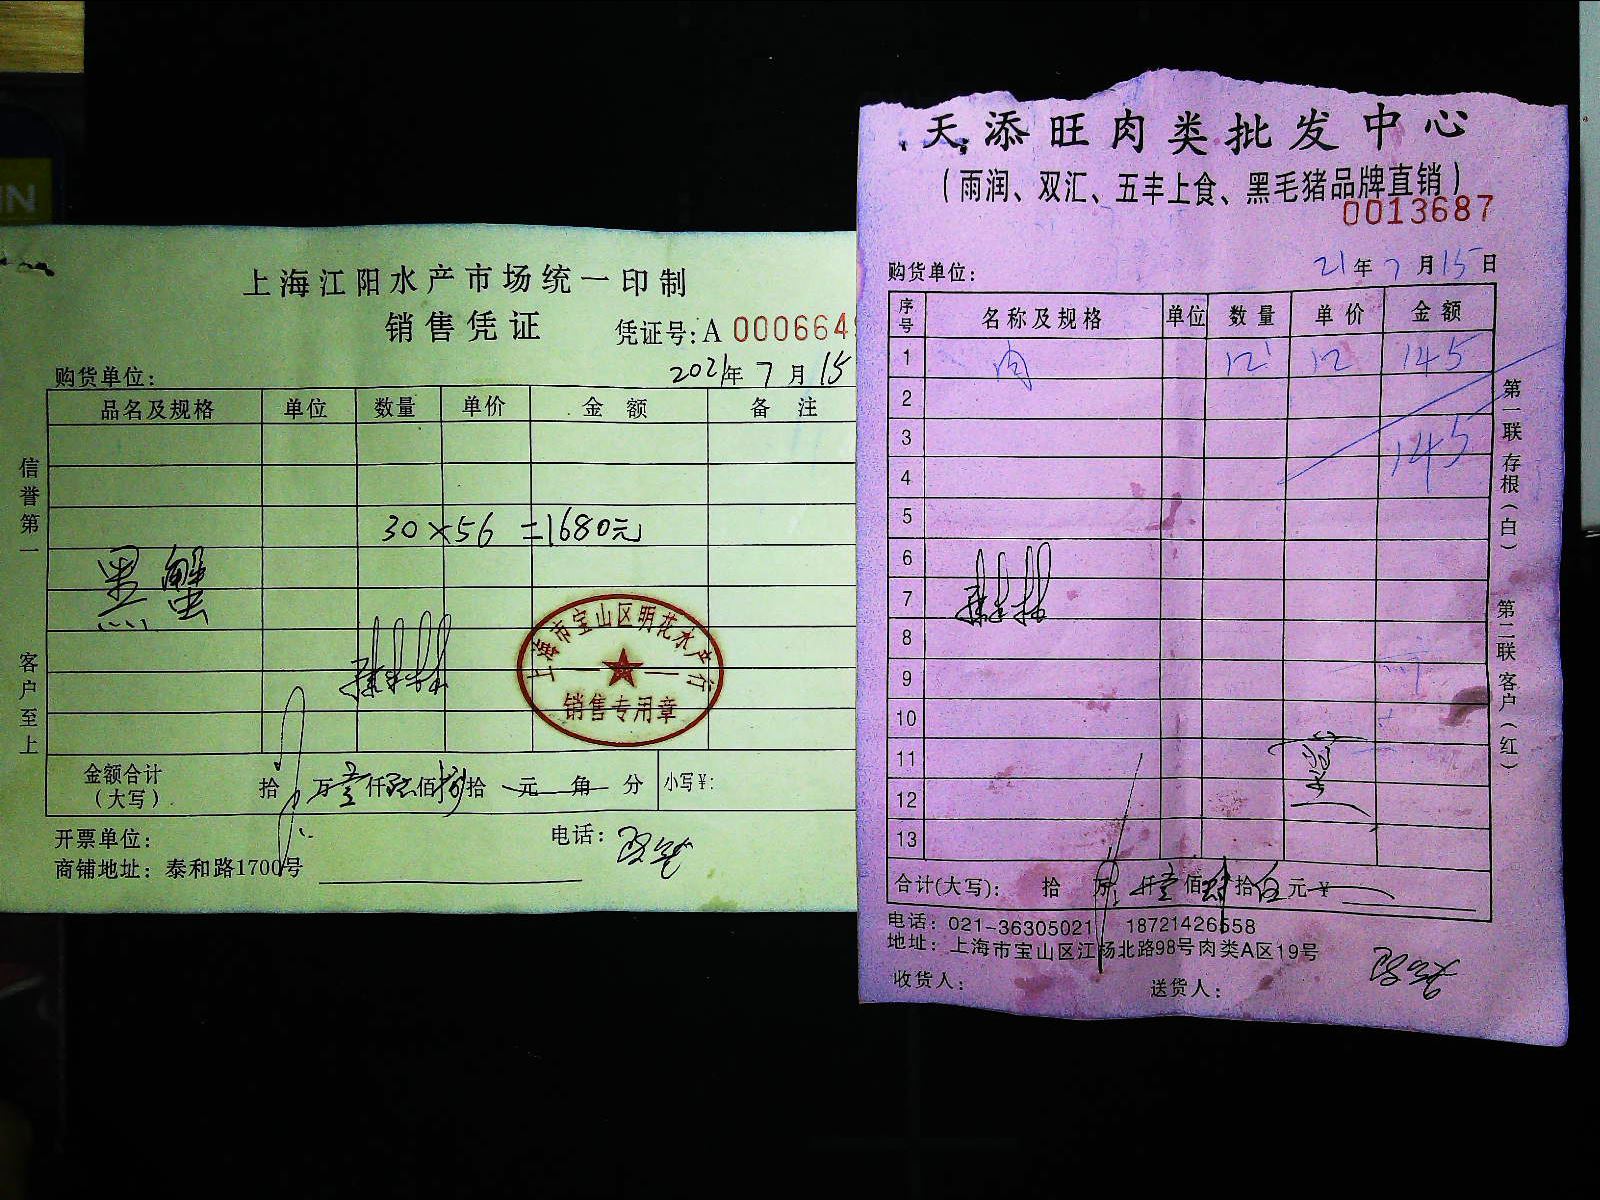 上海江阳水产市场统一印制
销售凭证 凭证号: A 000664
购货单位: 2021年 7 月 15
品名及规格 单位 数量 单价 金 额 备 注
30×56 =1680元
黑蟹
上海市宝山区明花水产行
销售专用章
金额合计(大写) 拾 万 壹 仟 陆 佰 捌 拾 元 角 分 小写¥:
开票单位: 电话:
商铺地址: 泰和路1700号
信誉第一 客户至上
天添旺肉类批发中心
(雨润、双汇、五丰上食、黑毛猪品牌直销)
0013687
购货单位: 21 年 7 月 15 日
序号 名称及规格 单位 数量 单价 金额
1 肉 12 12 145
2
3 145
4
5
6
7
8
9
10
11
12
13
合计(大写): 拾 万 仟 壹 佰 肆 拾 伍 元 ¥
电话: 021-36305021 18721426558
地址: 上海市宝山区江杨北路98号肉类A区19号
收货人: 送货人:
第一联 存根(白) 第二联 客户(红)